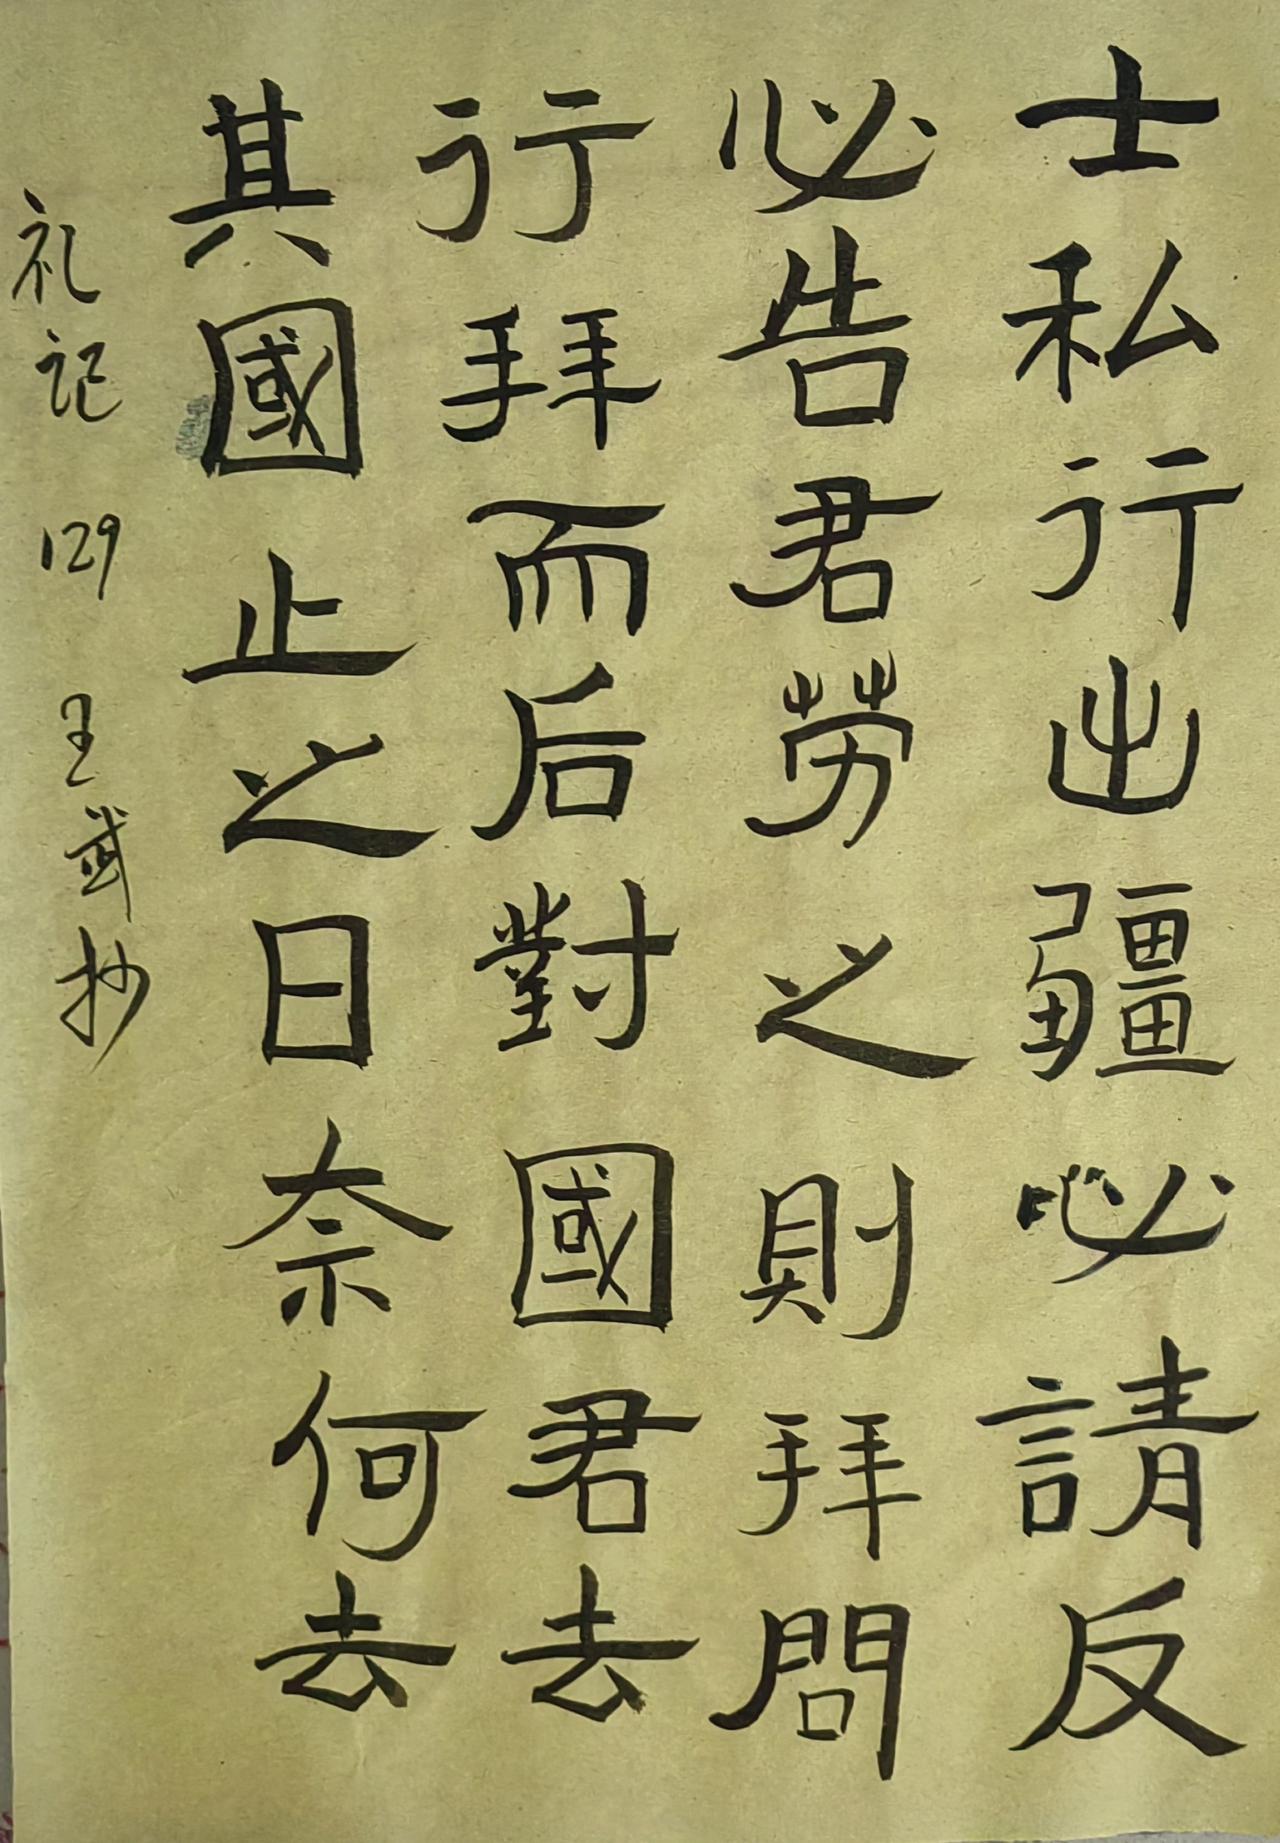 士私行出疆必請反
必告君劳之則拜問
行拜而后對國君去
其國止之曰奈何去
礼记 129 王武抄